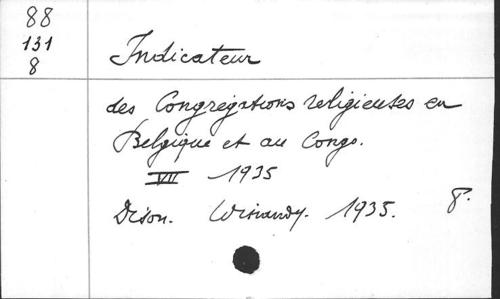 88
131
8
Indicateur
des Congrégations religieuses en
Belgique et au Congo.
VII 1935
Dison. Winandy. 1935. 8°.